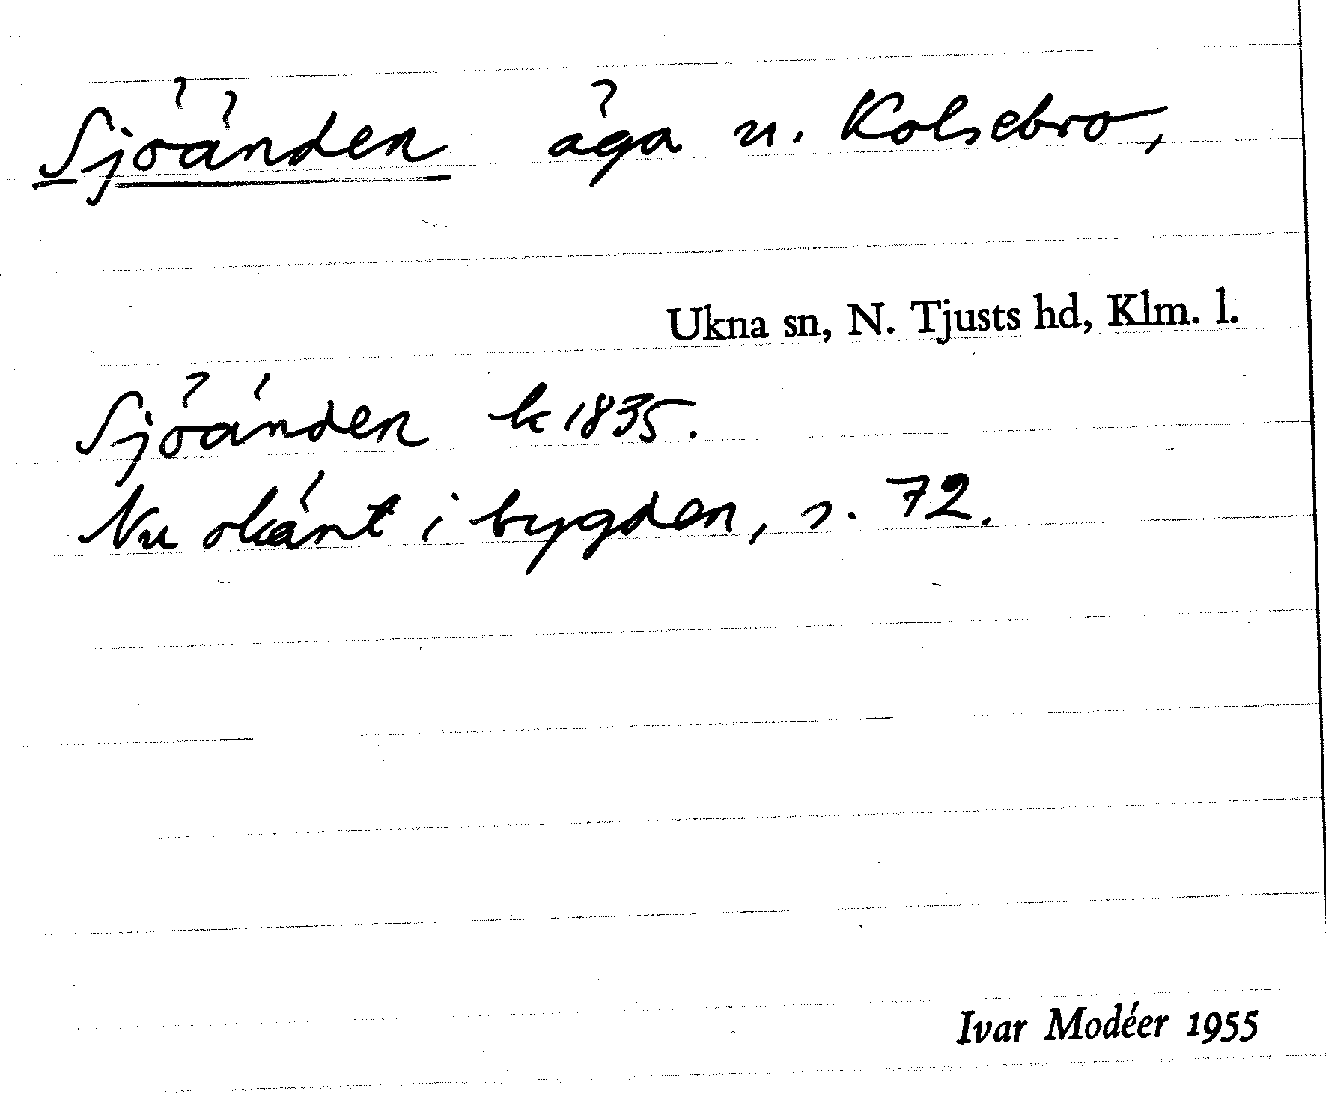 Sjöänden äga u. Kolsebro,
Ukna sn, N. Tjusts hd, Klm. l.
Sjöänden k 1835.
Nu okänt i bygden, s. 72.
Ivar Modéer 1955